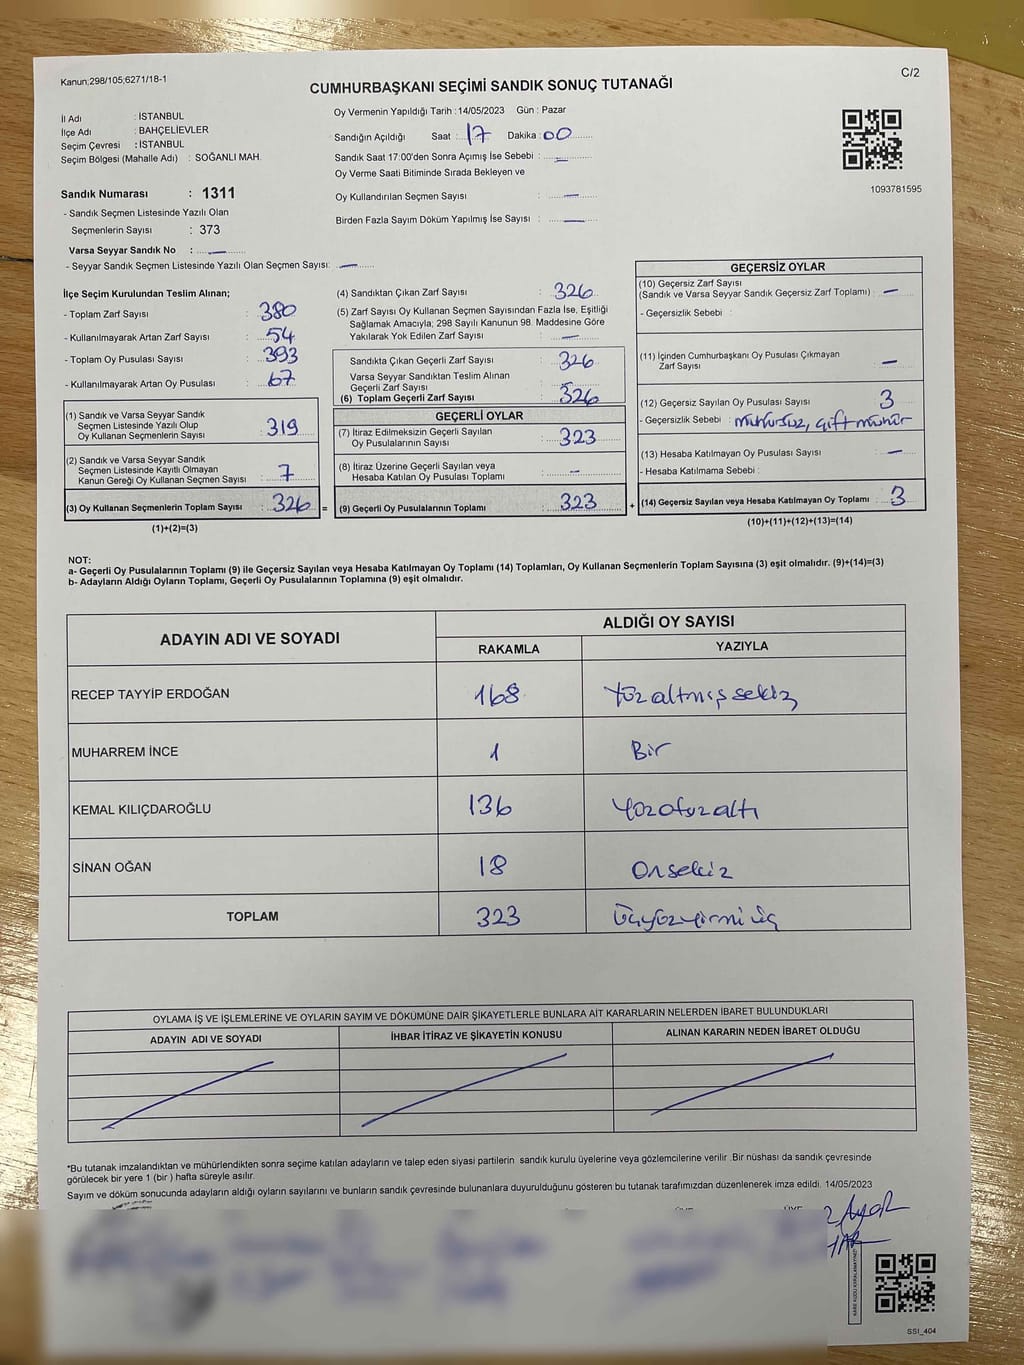 Kanun:298/105;6271/18-1
C/2
CUMHURBAŞKANI SEÇİMİ SANDIK SONUÇ TUTANAĞI
İl Adı : İSTANBUL
İlçe Adı : BAHÇELİEVLER
Seçim Çevresi : İSTANBUL
Seçim Bölgesi (Mahalle Adı) : SOĞANLI MAH.
Sandık Numarası : 1311
- Sandık Seçmen Listesinde Yazılı Olan
Seçmenlerin Sayısı : 373
Varsa Seyyar Sandık No : —
- Seyyar Sandık Seçmen Listesinde Yazılı Olan Seçmen Sayısı: —
Oy Vermenin Yapıldığı Tarih : 14/05/2023 Gün : Pazar
Sandığın Açıldığı Saat : 17 Dakika : 00
Sandık Saat 17:00'den Sonra Açımış İse Sebebi : —
Oy Verme Saati Bitiminde Sırada Bekleyen ve
Oy Kullandırılan Seçmen Sayısı : —
Birden Fazla Sayım Döküm Yapılmış İse Sayısı : —
1093781595
İlçe Seçim Kurulundan Teslim Alınan;
- Toplam Zarf Sayısı : 380
- Kullanılmayarak Artan Zarf Sayısı : 54
- Toplam Oy Pusulası Sayısı : 393
- Kullanılmayarak Artan Oy Pusulası : 67
(1) Sandık ve Varsa Seyyar Sandık
Seçmen Listesinde Yazılı Olup
Oy Kullanan Seçmenlerin Sayısı : 319
(2) Sandık ve Varsa Seyyar Sandık
Seçmen Listesinde Kayıtlı Olmayan
Kanun Gereği Oy Kullanan Seçmen Sayısı : 7
(3) Oy Kullanan Seçmenlerin Toplam Sayısı : 326 =
(1)+(2)=(3)
(4) Sandıktan Çıkan Zarf Sayısı : 326
(5) Zarf Sayısı Oy Kullanan Seçmen Sayısından Fazla İse, Eşitliği
Sağlamak Amacıyla; 298 Sayılı Kanunun 98. Maddesine Göre
Yakılarak Yok Edilen Zarf Sayısı : —
Sandıkta Çıkan Geçerli Zarf Sayısı : 326
Varsa Seyyar Sandıktan Teslim Alınan
Geçerli Zarf Sayısı
(6) Toplam Geçerli Zarf Sayısı : 326
GEÇERLİ OYLAR
(7) İtiraz Edilmeksizin Geçerli Sayılan
Oy Pusulalarının Sayısı : 323
(8) İtiraz Üzerine Geçerli Sayılan veya
Hesaba Katılan Oy Pusulası Toplamı : —
(9) Geçerli Oy Pusulalarının Toplamı : 323 +
GEÇERSİZ OYLAR
(10) Geçersiz Zarf Sayısı
(Sandık ve Varsa Seyyar Sandık Geçersiz Zarf Toplamı) : —
- Geçersizlik Sebebi :
(11) İçinden Cumhurbaşkanı Oy Pusulası Çıkmayan
Zarf Sayısı : —
(12) Geçersiz Sayılan Oy Pusulası Sayısı : 3
- Geçersizlik Sebebi : mühürsüz, çift mühür
(13) Hesaba Katılmayan Oy Pusulası Sayısı : —
- Hesaba Katılmama Sebebi :
(14) Geçersiz Sayılan veya Hesaba Katılmayan Oy Toplamı : 3
(10)+(11)+(12)+(13)=(14)
NOT:
a- Geçerli Oy Pusulalarının Toplamı (9) ile Geçersiz Sayılan veya Hesaba Katılmayan Oy Toplamı (14) Toplamları, Oy Kullanan Seçmenlerin Toplam Sayısına (3) eşit olmalıdır. (9)+(14)=(3)
b- Adayların Aldığı Oyların Toplamı, Geçerli Oy Pusulalarının Toplamına (9) eşit olmalıdır.
ADAYIN ADI VE SOYADI ALDIĞI OY SAYISI
RAKAMLA YAZIYLA
RECEP TAYYİP ERDOĞAN 168 Yüzaltmışsekiz
MUHARREM İNCE 1 Bir
KEMAL KILIÇDAROĞLU 136 Yüzotuzaltı
SİNAN OĞAN 18 Onsekiz
TOPLAM 323 Üçyüzyirmiüç
OYLAMA İŞ VE İŞLEMLERİNE VE OYLARIN SAYIM VE DÖKÜMÜNE DAİR ŞİKAYETLERLE BUNLARA AİT KARARLARIN NELERDEN İBARET BULUNDUKLARI
ADAYIN ADI VE SOYADI İHBAR İTİRAZ VE ŞİKAYETİN KONUSU ALINAN KARARIN NEDEN İBARET OLDUĞU
*Bu tutanak imzalandıktan ve mühürlendikten sonra seçime katılan adayların ve talep eden siyasi partilerin sandık kurulu üyelerine veya gözlemcilerine verilir .Bir nüshası da sandık çevresinde
görülecek bir yere 1 (bir ) hafta süreyle asılır.
Sayım ve döküm sonucunda adayların aldığı oyların sayılarını ve bunların sandık çevresinde bulunanlara duyurulduğunu gösteren bu tutanak tarafımızdan düzenlenerek imza edildi. 14/05/2023
SSI_404